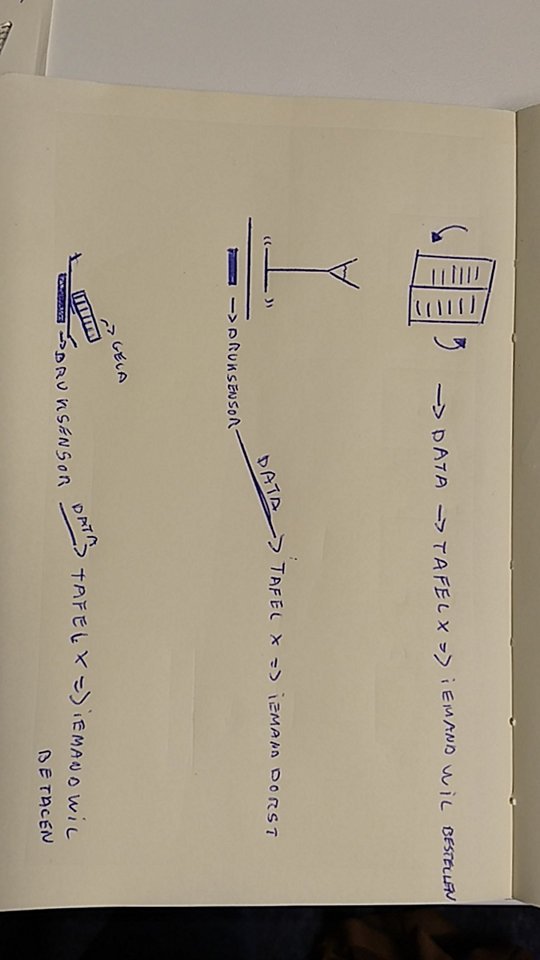 -> DATA -> TAFEL X => iEMAND WiL BESTELLEN
" "
-> DRUKSENSOR
DATA
-> TAFEL X => iEMAND DORST
-> GELD
-> DRUKSENSOR
DATA
-> TAFEL X => iEMAND WiL
BETALEN